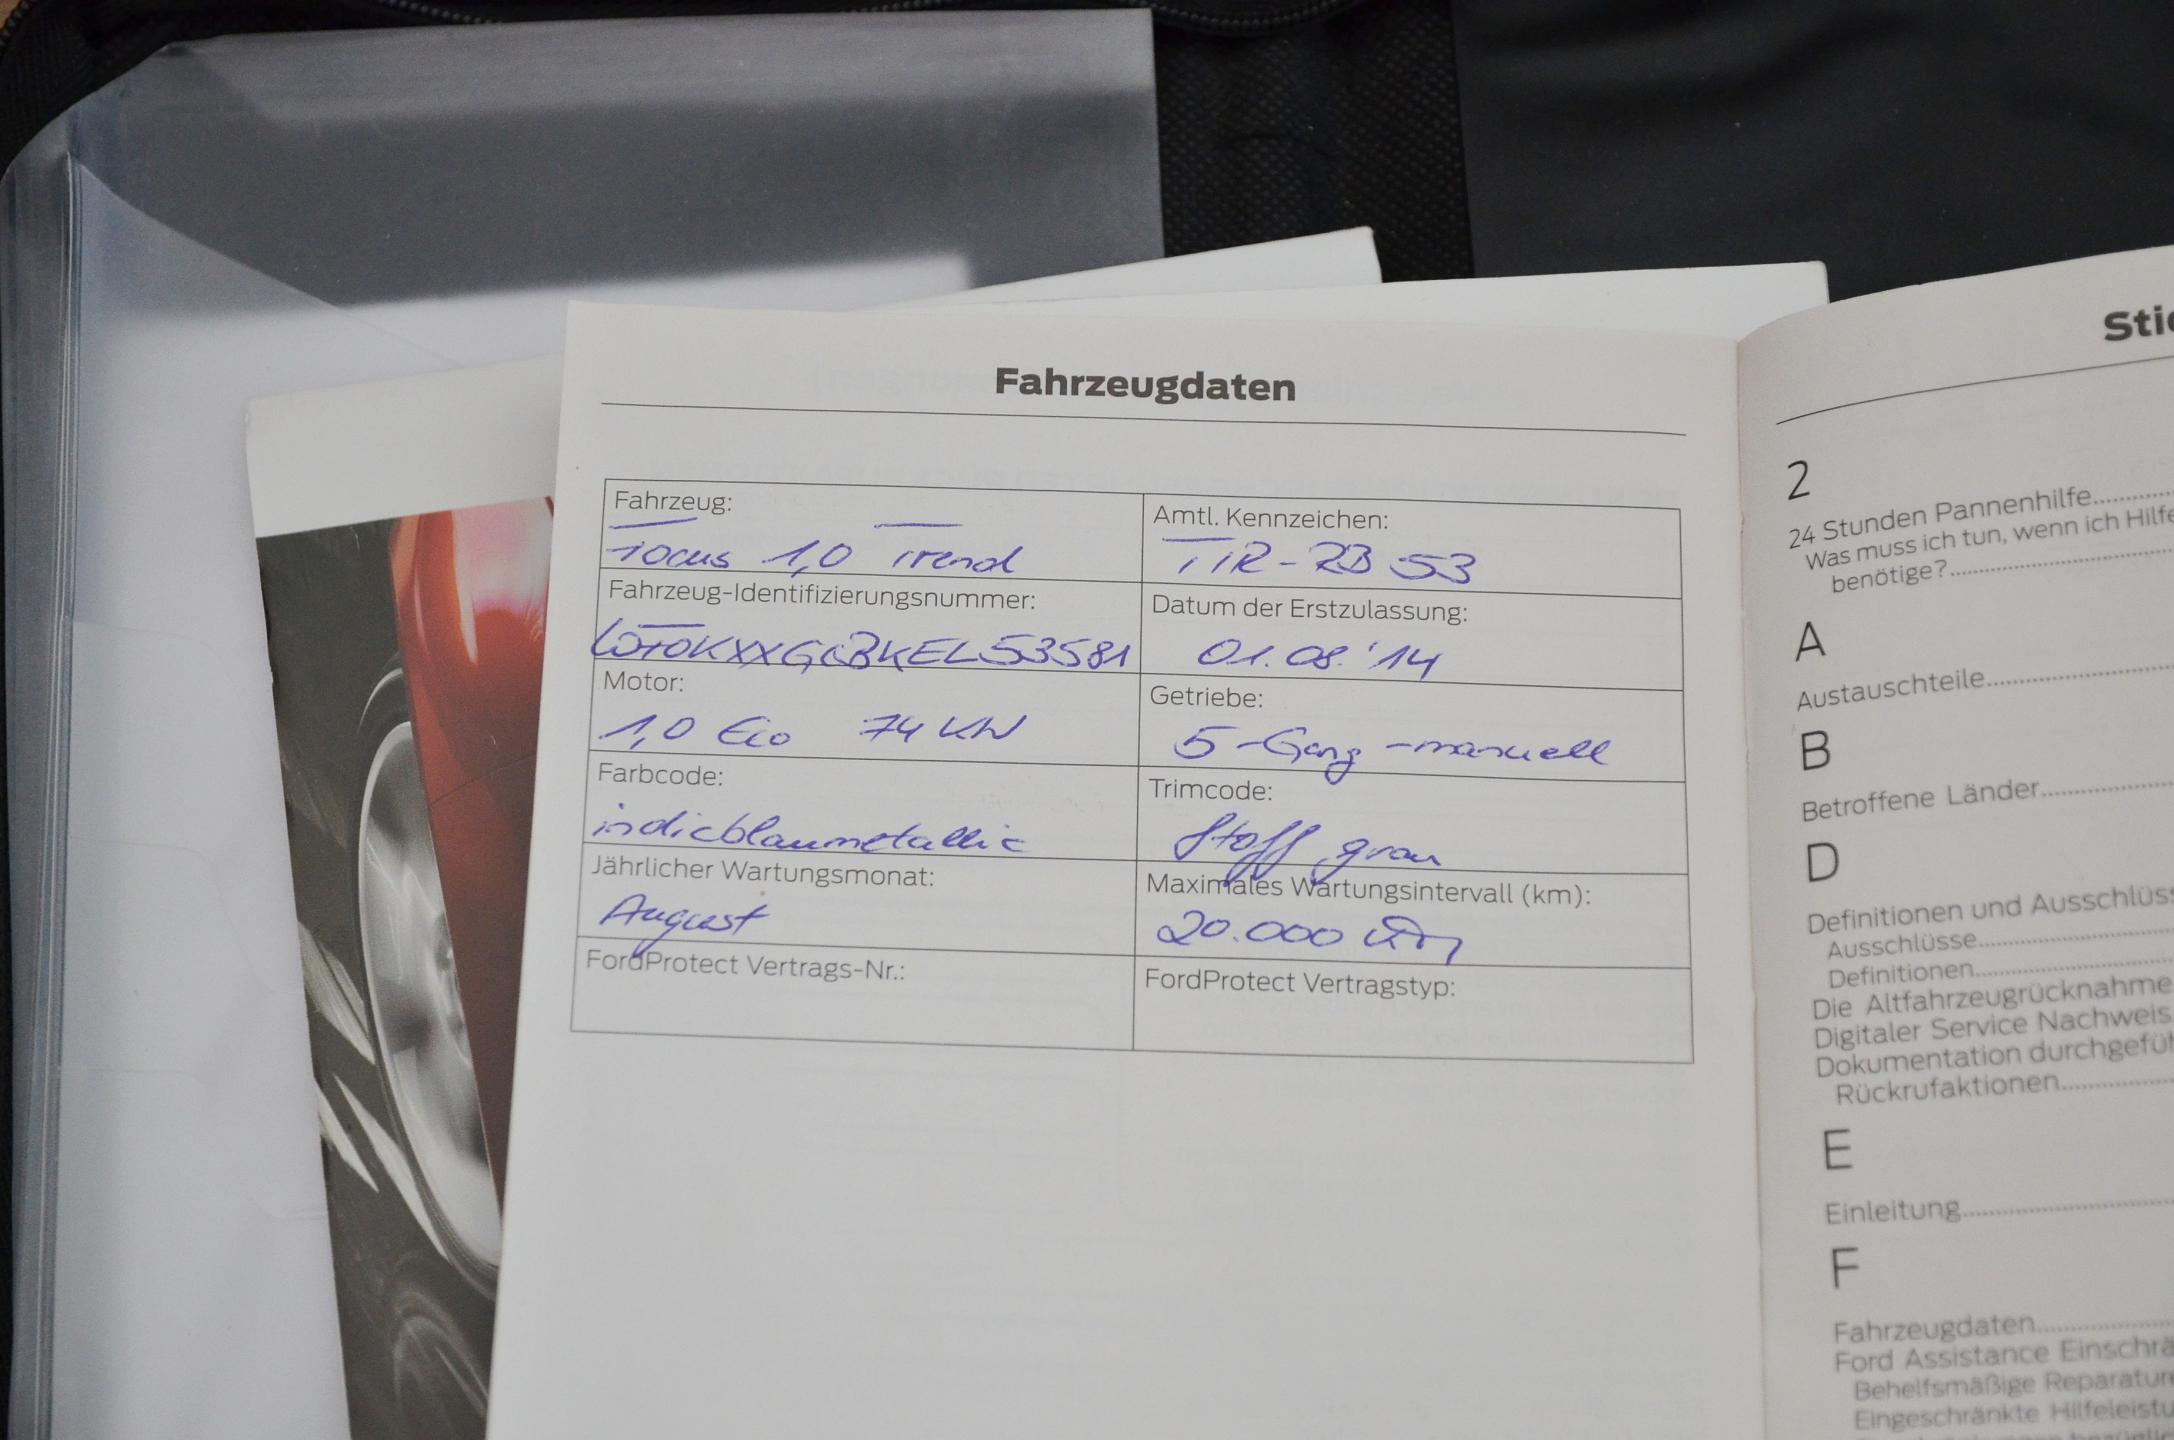 Fahrzeugdaten
Fahrzeug:
Focus 1,0 Trend
Amtl. Kennzeichen:
TIR-RB 53
Fahrzeug-Identifizierungsnummer:
WF0KXXGCBKEL53581
Datum der Erstzulassung:
01.08.'14
Motor:
1,0 Eco 74 KW
Getriebe:
5-Gang-manuell
Farbcode:
indicblaumetallic
Trimcode:
Stoff grau
Jährlicher Wartungsmonat:
August
Maximales Wartungsintervall (km):
20.000 km
FordProtect Vertrags-Nr.:
FordProtect Vertragstyp:
2
24 Stunden Pannenhilfe
Was muss ich tun, wenn ich Hilfe
benötige?
A
Austauschteile
B
Betroffene Länder
D
Definitionen und Ausschlüss
Ausschlüsse
Definitionen
Die Altfahrzeugrücknahme
Digitaler Service Nachweis
Dokumentation durchgefüh
Rückrufaktionen
E
Einleitung
F
Fahrzeugdaten
Ford Assistance Einschrä
Behelfsmäßige Reparature
Eingeschränkte Hilfeleistu